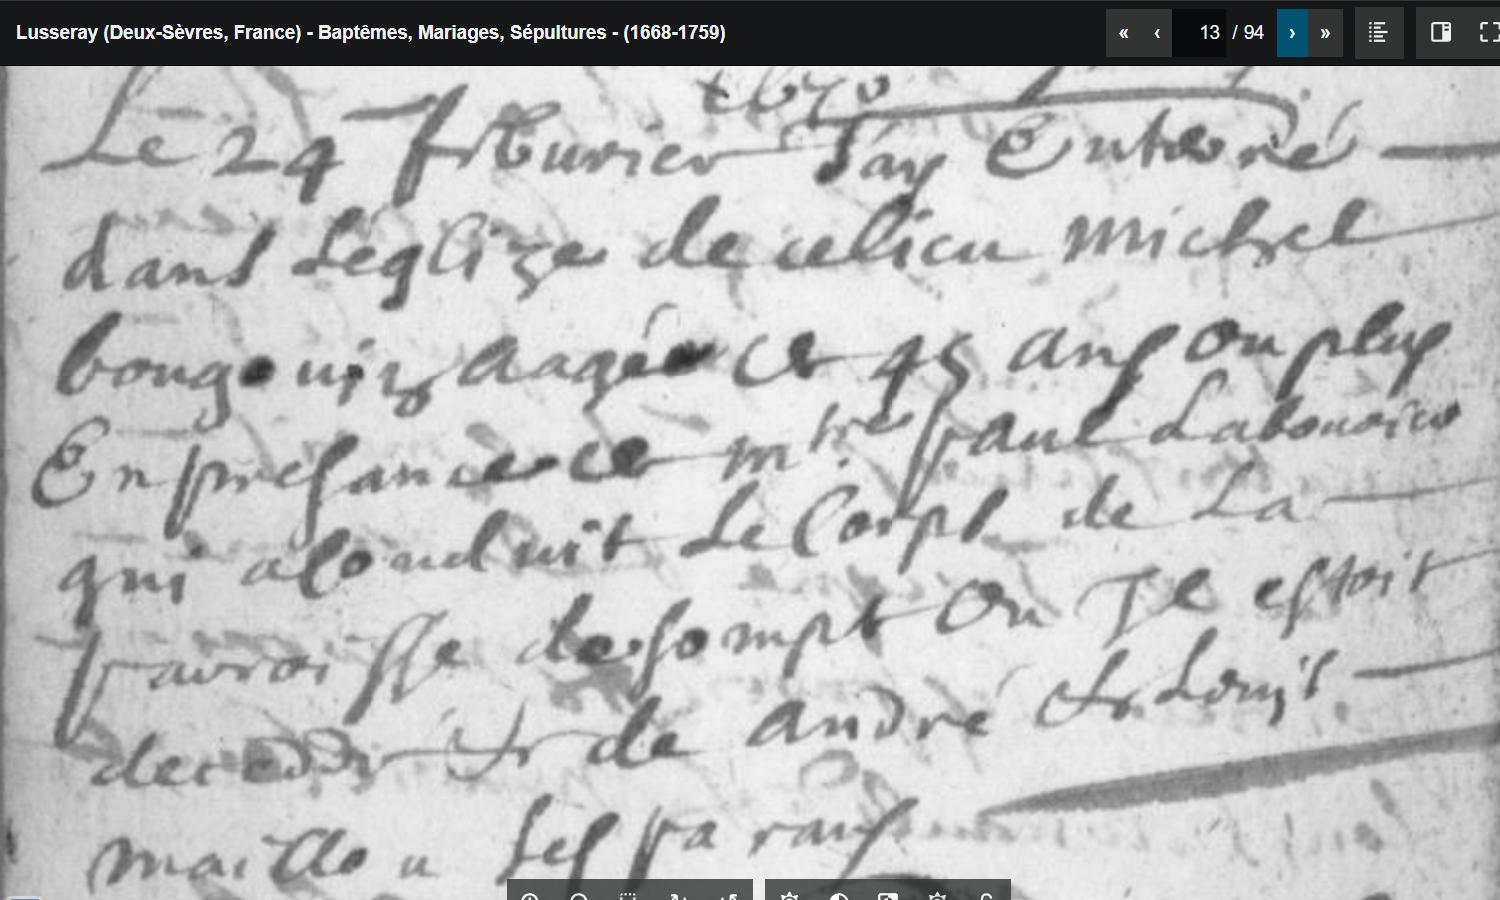 Lusseray (Deux-Sèvres, France) - Baptêmes, Mariages, Sépultures - (1668-1759)
« ‹ 13 / 94 › »
1670
Le 24 febvrier Jay Enterré
dans Léglize de ce lieu michel
aagé de 45 ans ou plus
En presance de mtre paul Labonoire
qui a Conduit Le Corps de La
parroisse de sompt ou Jl estoit
decedé & de andré & Louis
maillou ses parans